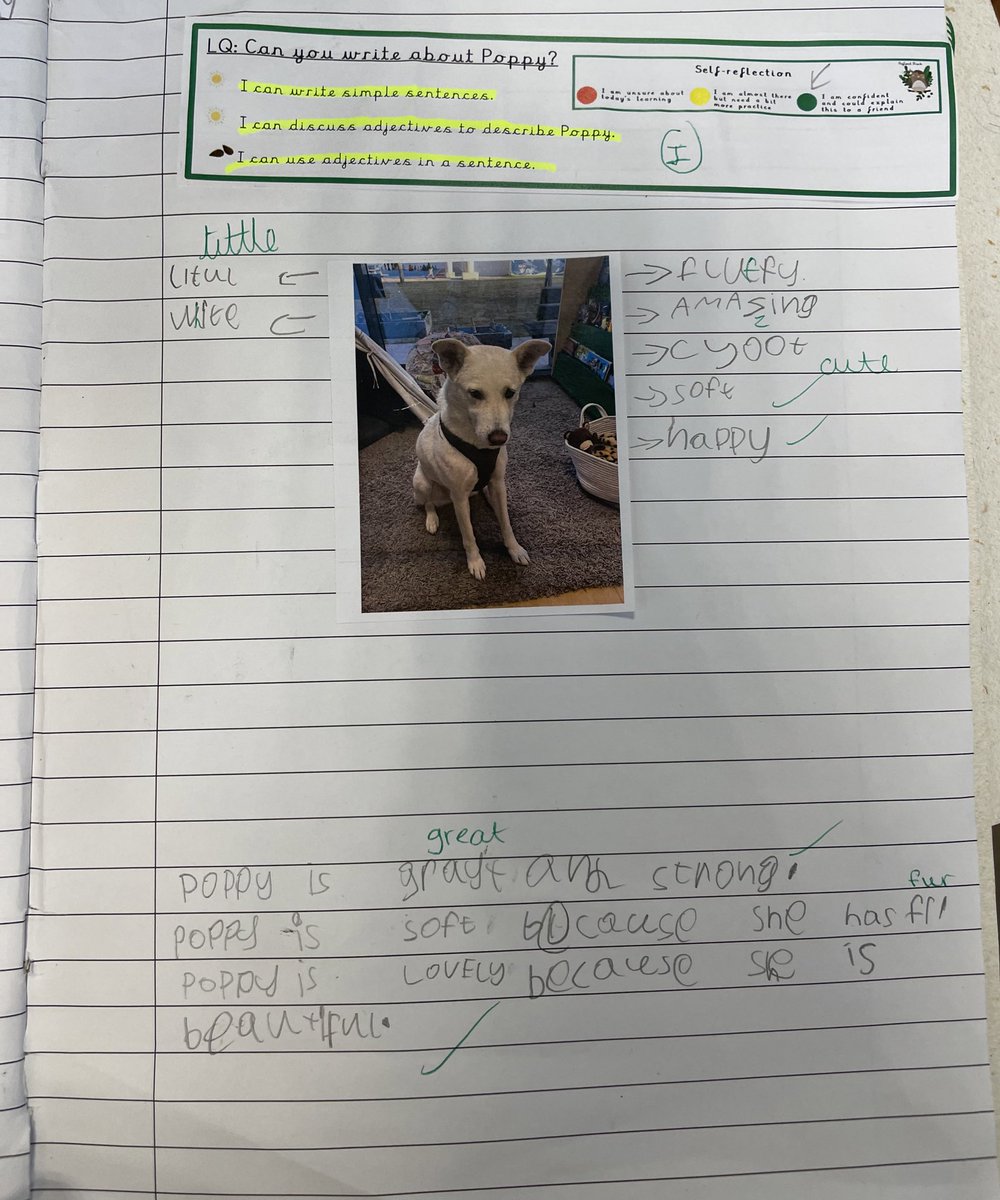 LQ: Can you write about Poppy?
I can write simple sentences.
I can discuss adjectives to describe Poppy.
I can use adjectives in a sentence.
Self-reflection
I am unsure about
today's learning
I am almost there
but need a bit
more practice
I am confident
and could explain
this to a friend
I
little
litul
white
fluffy.
AMASing
z
cyoot
cute
soft
happy
great
poppy is grayt and strong.
fur
poppy is soft because she has
poppy is LOVELY because she is
beautiful.